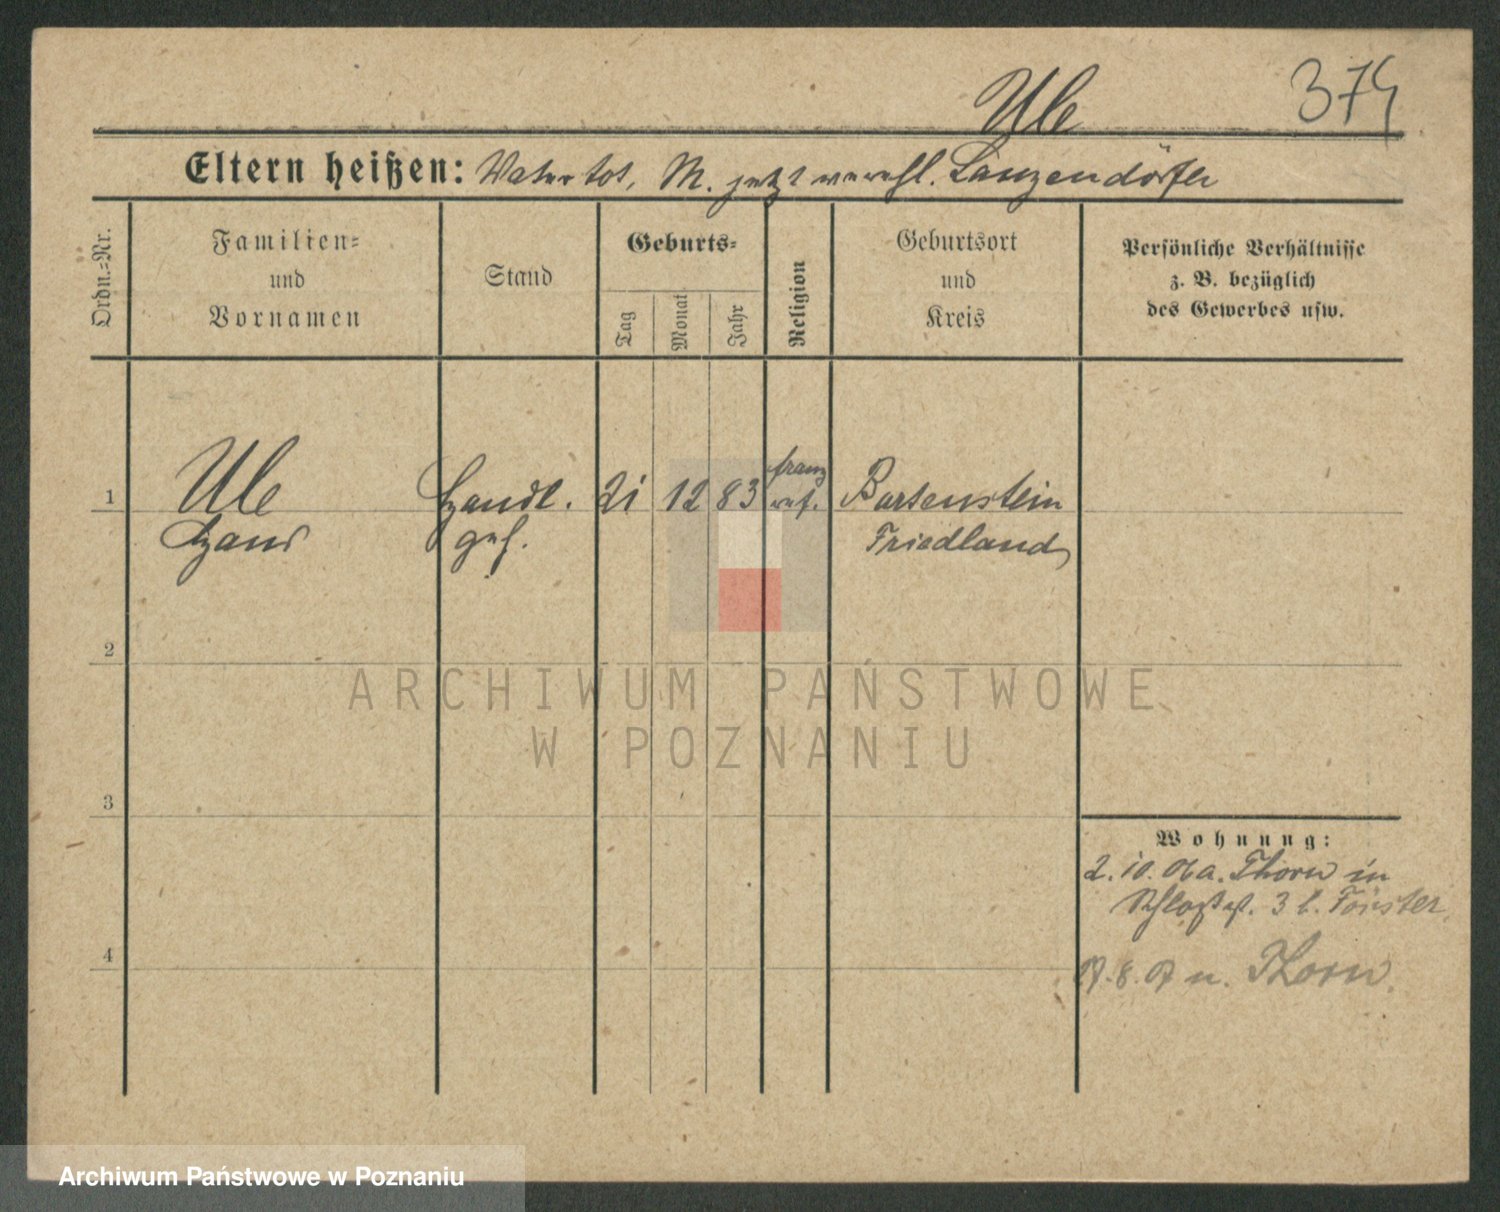 Ule
374
Eltern heißen: Vater tot, M. jetzt verehl. Lanzendörfer
Ordn.=Nr.
Familien=
und
Vornamen
Stand
Geburts=
Tag
Monat
Jahr
Religion
Geburtsort
und
Kreis
Persönliche Verhältnisse
z. B. bezüglich
des Gewerbes usw.
1 Ule Handl. 21 12 83 franz Bartenstein
Hans geh. ref. Friedland
2
3
4
Wohnung:
2. 10. 06 a. Thorn in
Schloßstr. 3 b. Förster
17. 8. 07 n. Thorn.
ARCHIWUM PAŃSTWOWE
W POZNANIU
Archiwum Państwowe w Poznaniu